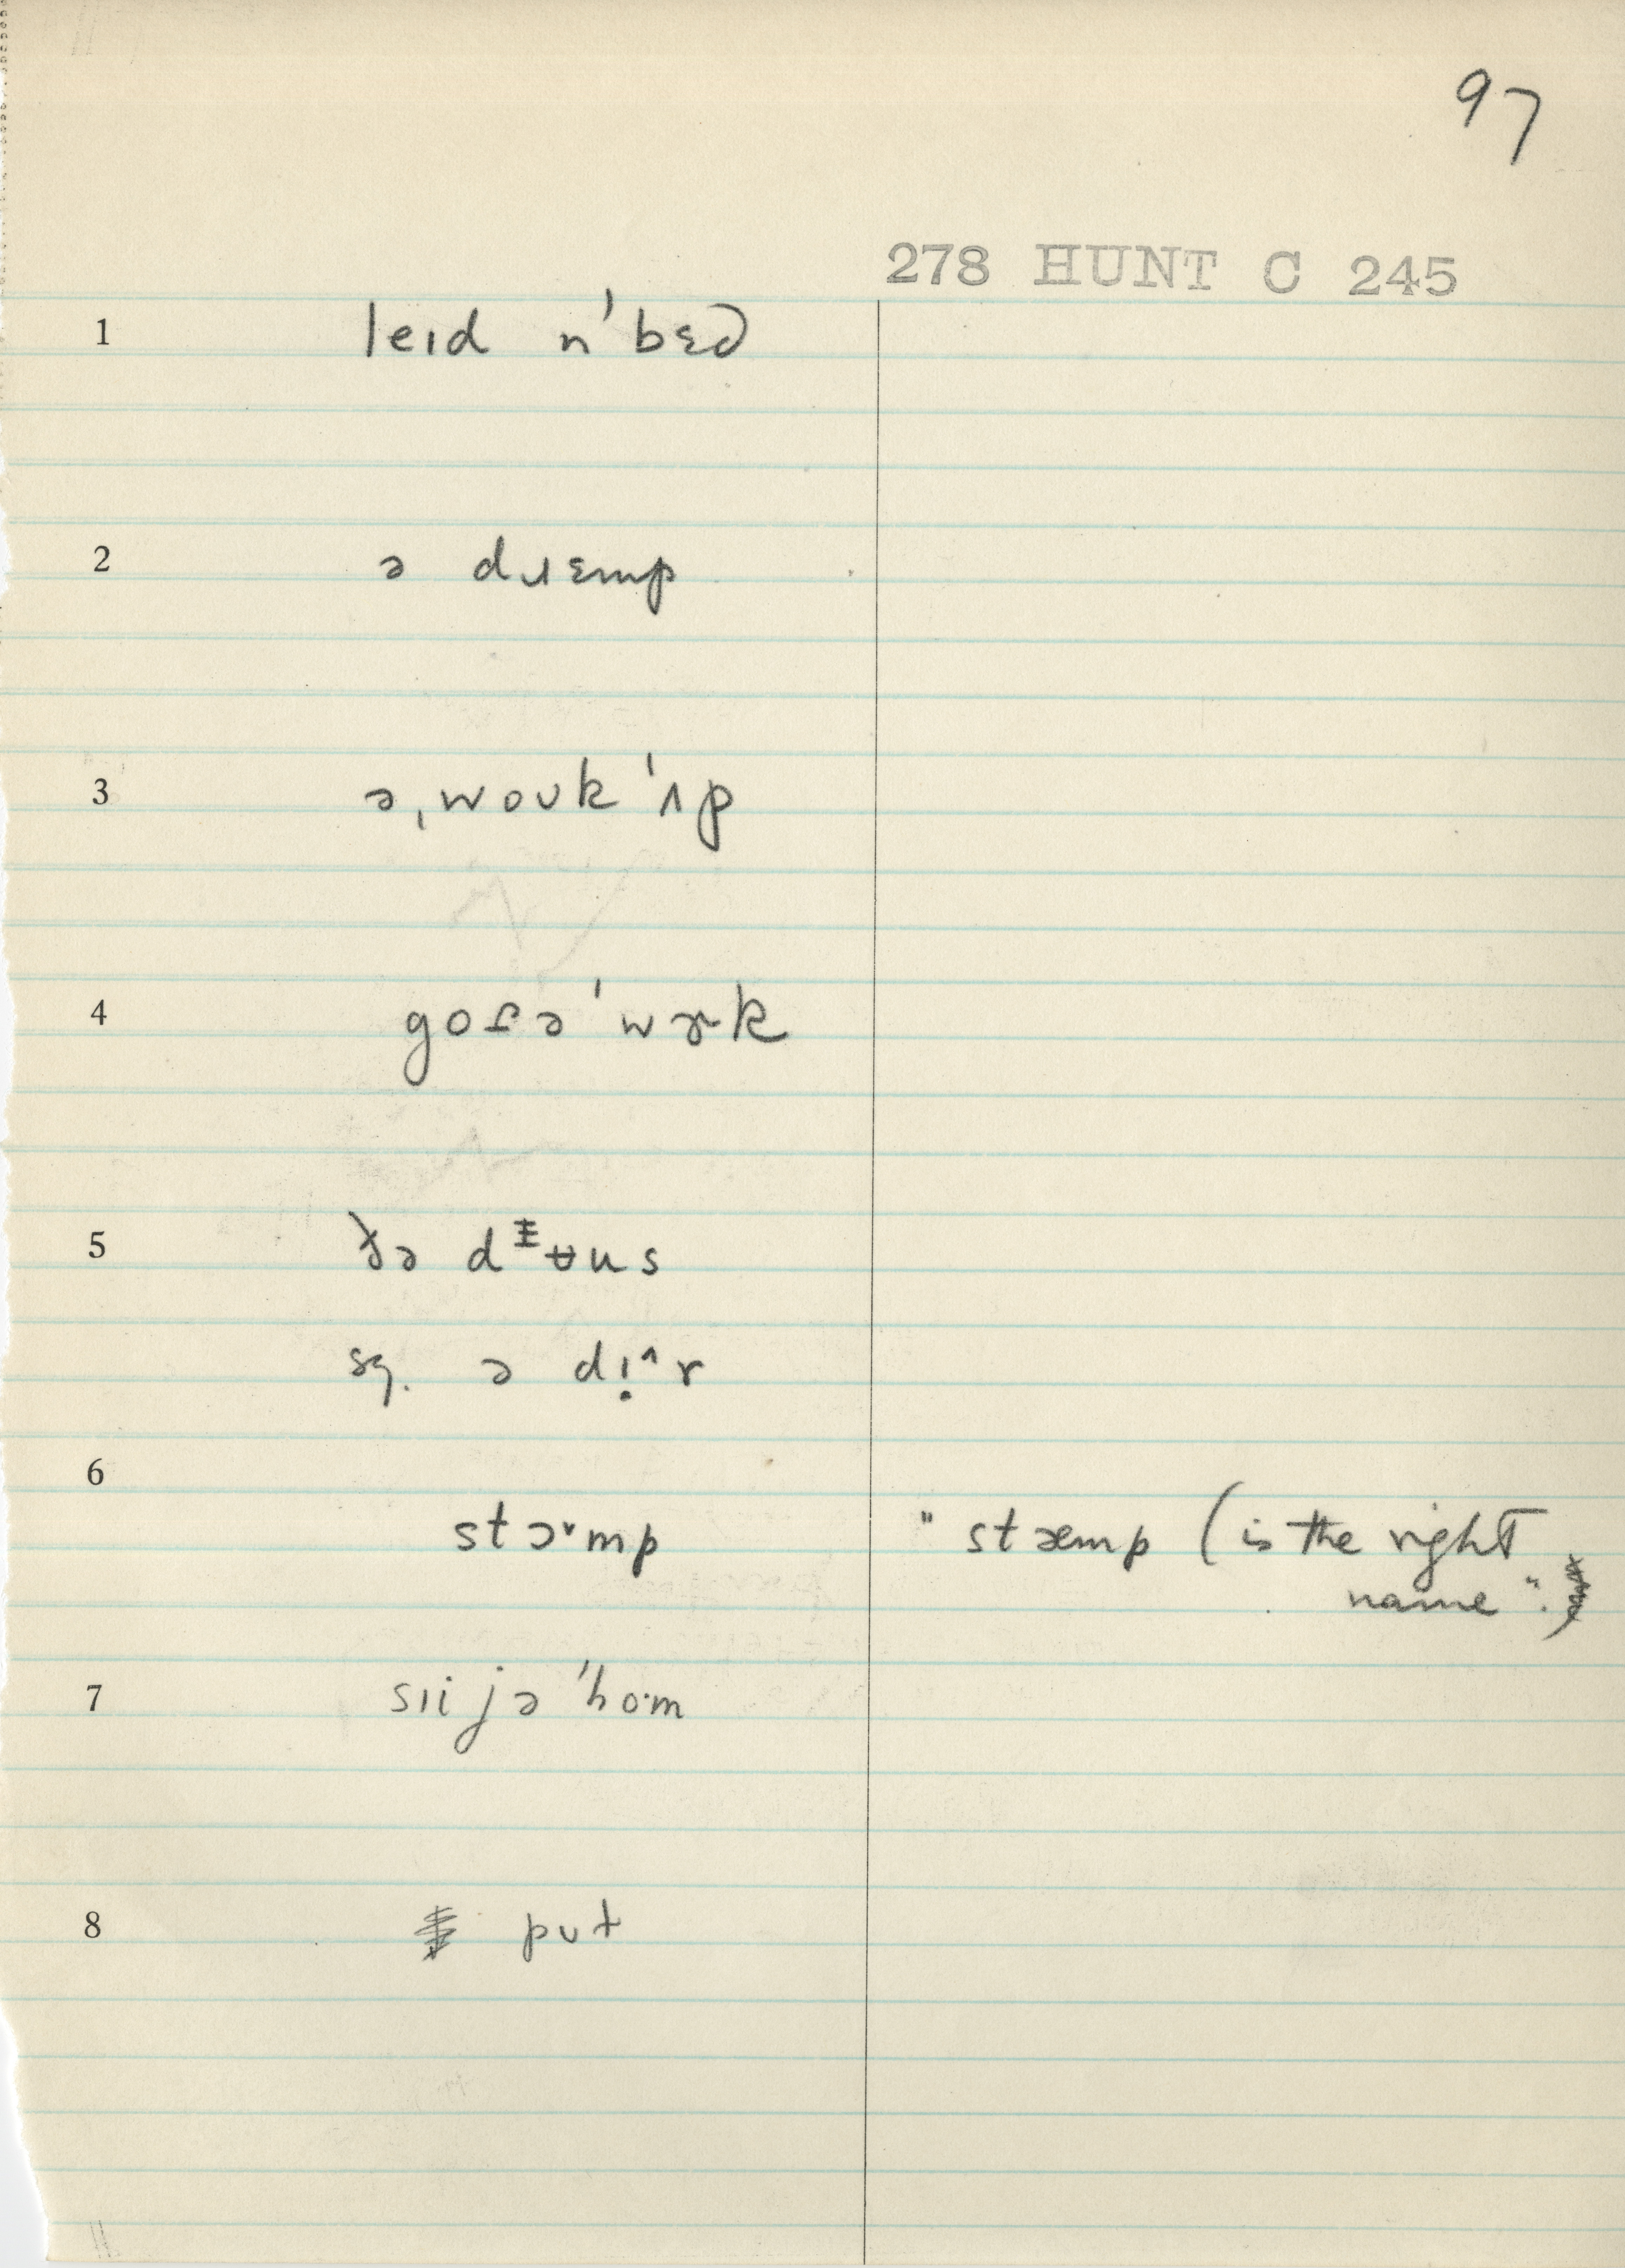 97
278 HUNT C 245
1 leɪd n ˈbɛd
2 ə dɹɛmp
3 ə ˌwoʊk ˈʌp
4 goɾə ˈwɚk
5 ðə
sg. ə dɪ̣^r
6
stɔ˅mp " stæmp (is the right
name".
7 sɪi jə ˈho·m
8 pʊt